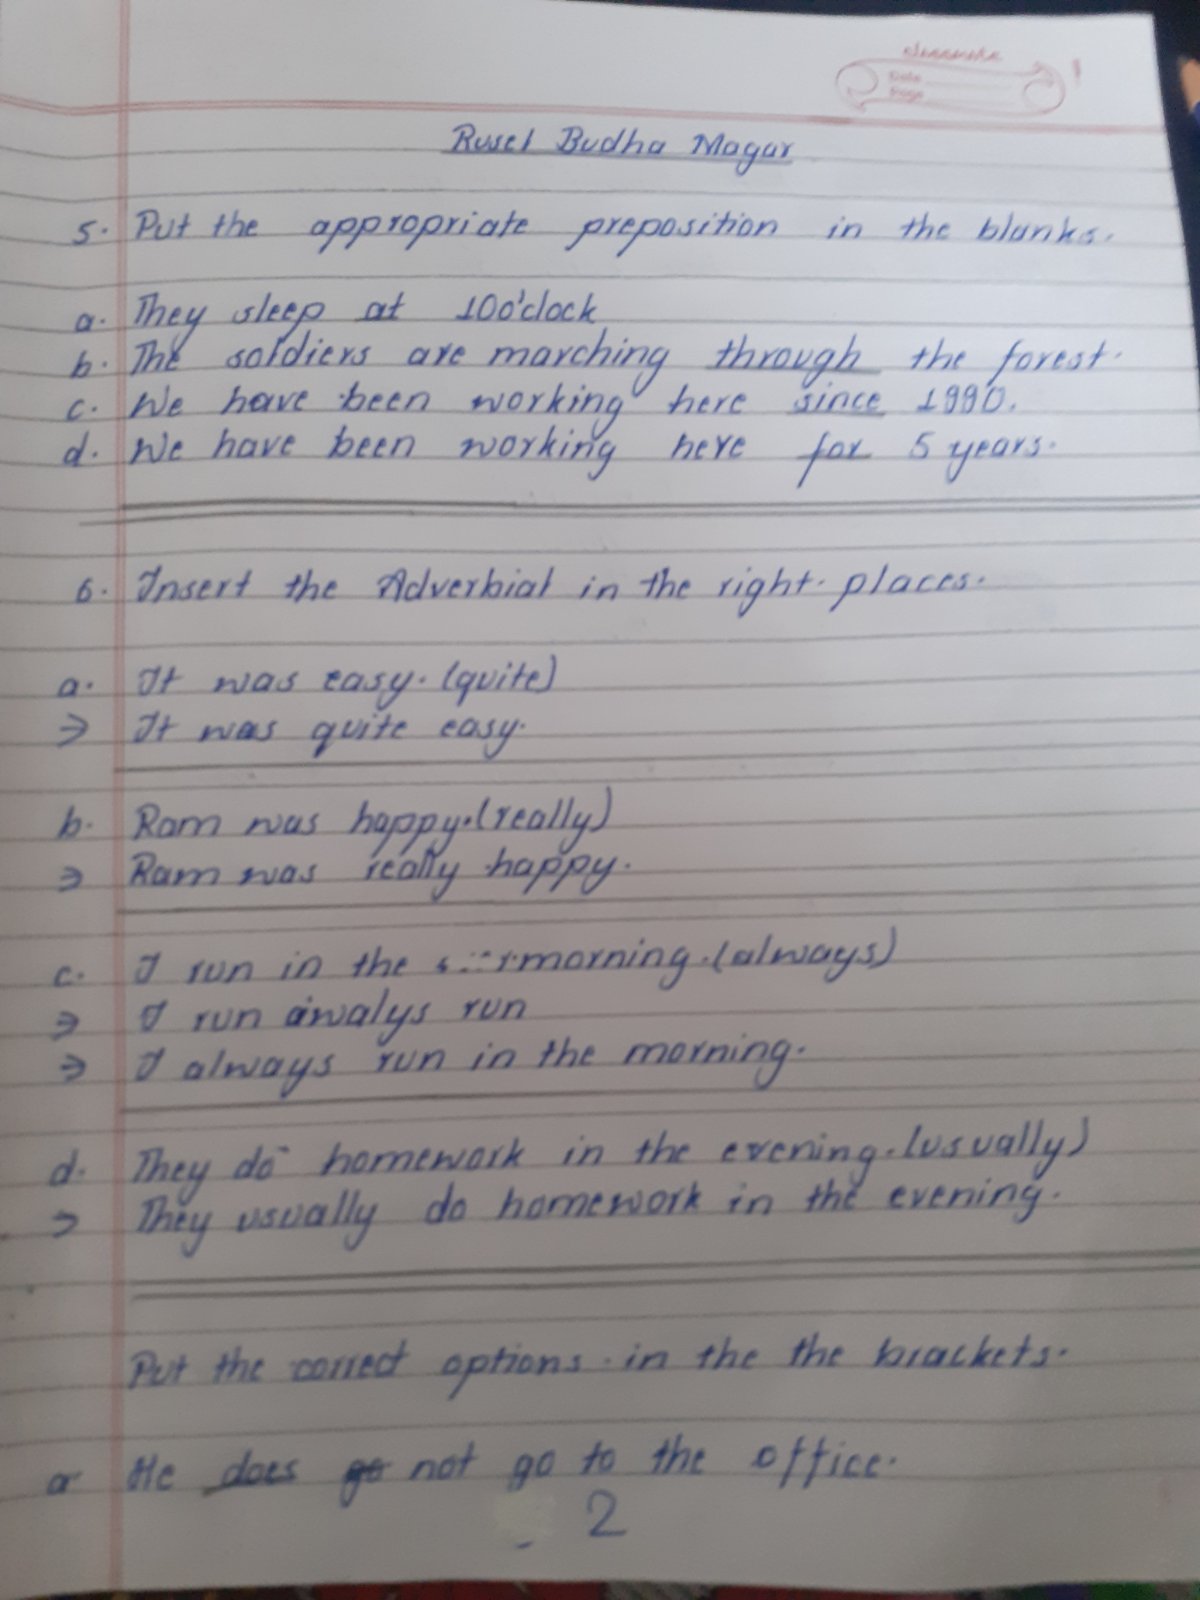 classmate
Date
Page
Rusel Budha Magar
5. Put the appropriate preposition in the blanks.
a. They sleep at 10o'clock
b. The soldiers are marching through the forest.
c. We have been working here since 1990.
d. We have been working here for 5 years.
6. Insert the Adverbial in the right places.
a. It was easy. (quite)
⇒ It was quite easy.
b. Ram was happy. (really)
⇒ Ram was really happy.
c. I run in the morning. (always)
⇒ I run awalys run
⇒ I always run in the morning.
d. They do homework in the evening. (usually)
⇒ They usually do homework in the evening.
Put the correct options in the the brackets.
a. He does go not go to the office.
2